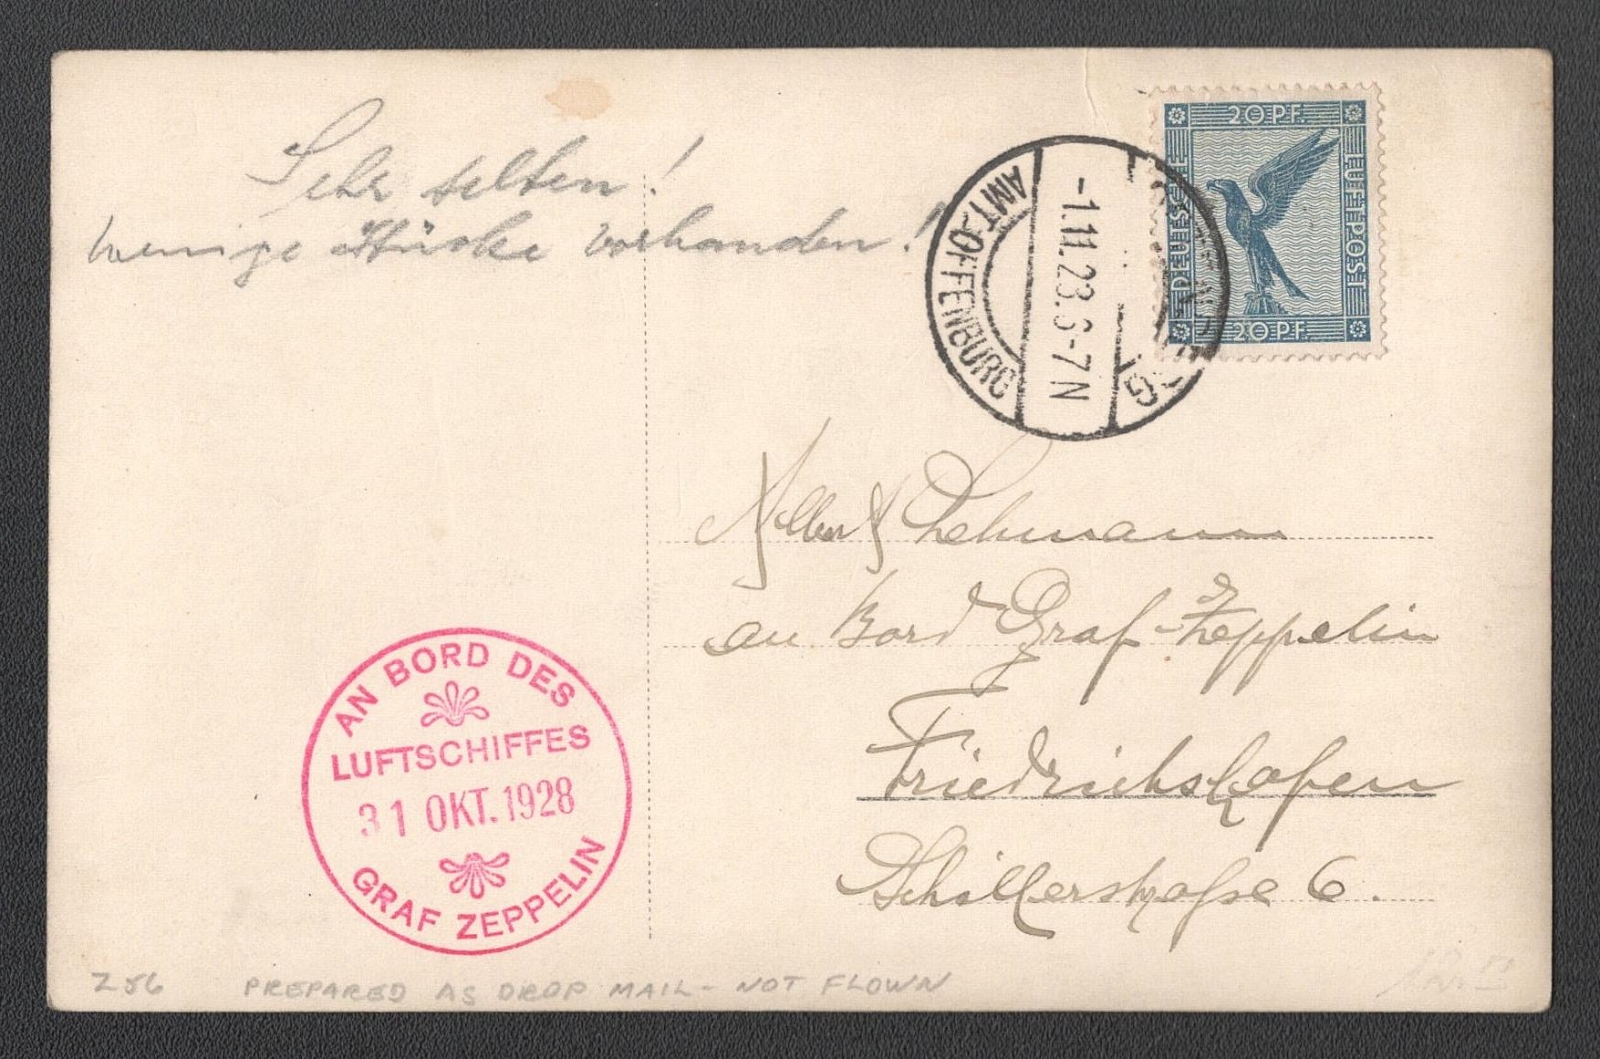 Sehr selten!
wenige Stücke vorhanden!
20 PF.
DEUTSCHE
LUFTPOST
20 PF.
AMT-OFFENBURG
-1.11.28.6-7N
Albert Lehmann
an Bord Graf-Zeppelin
Friedrichshafen
Schillerstraße 6.
AN BORD DES
LUFTSCHIFFES
31 OKT. 1928
GRAF ZEPPELIN
Z 56 PREPARED AS DROP MAIL - NOT FLOWN